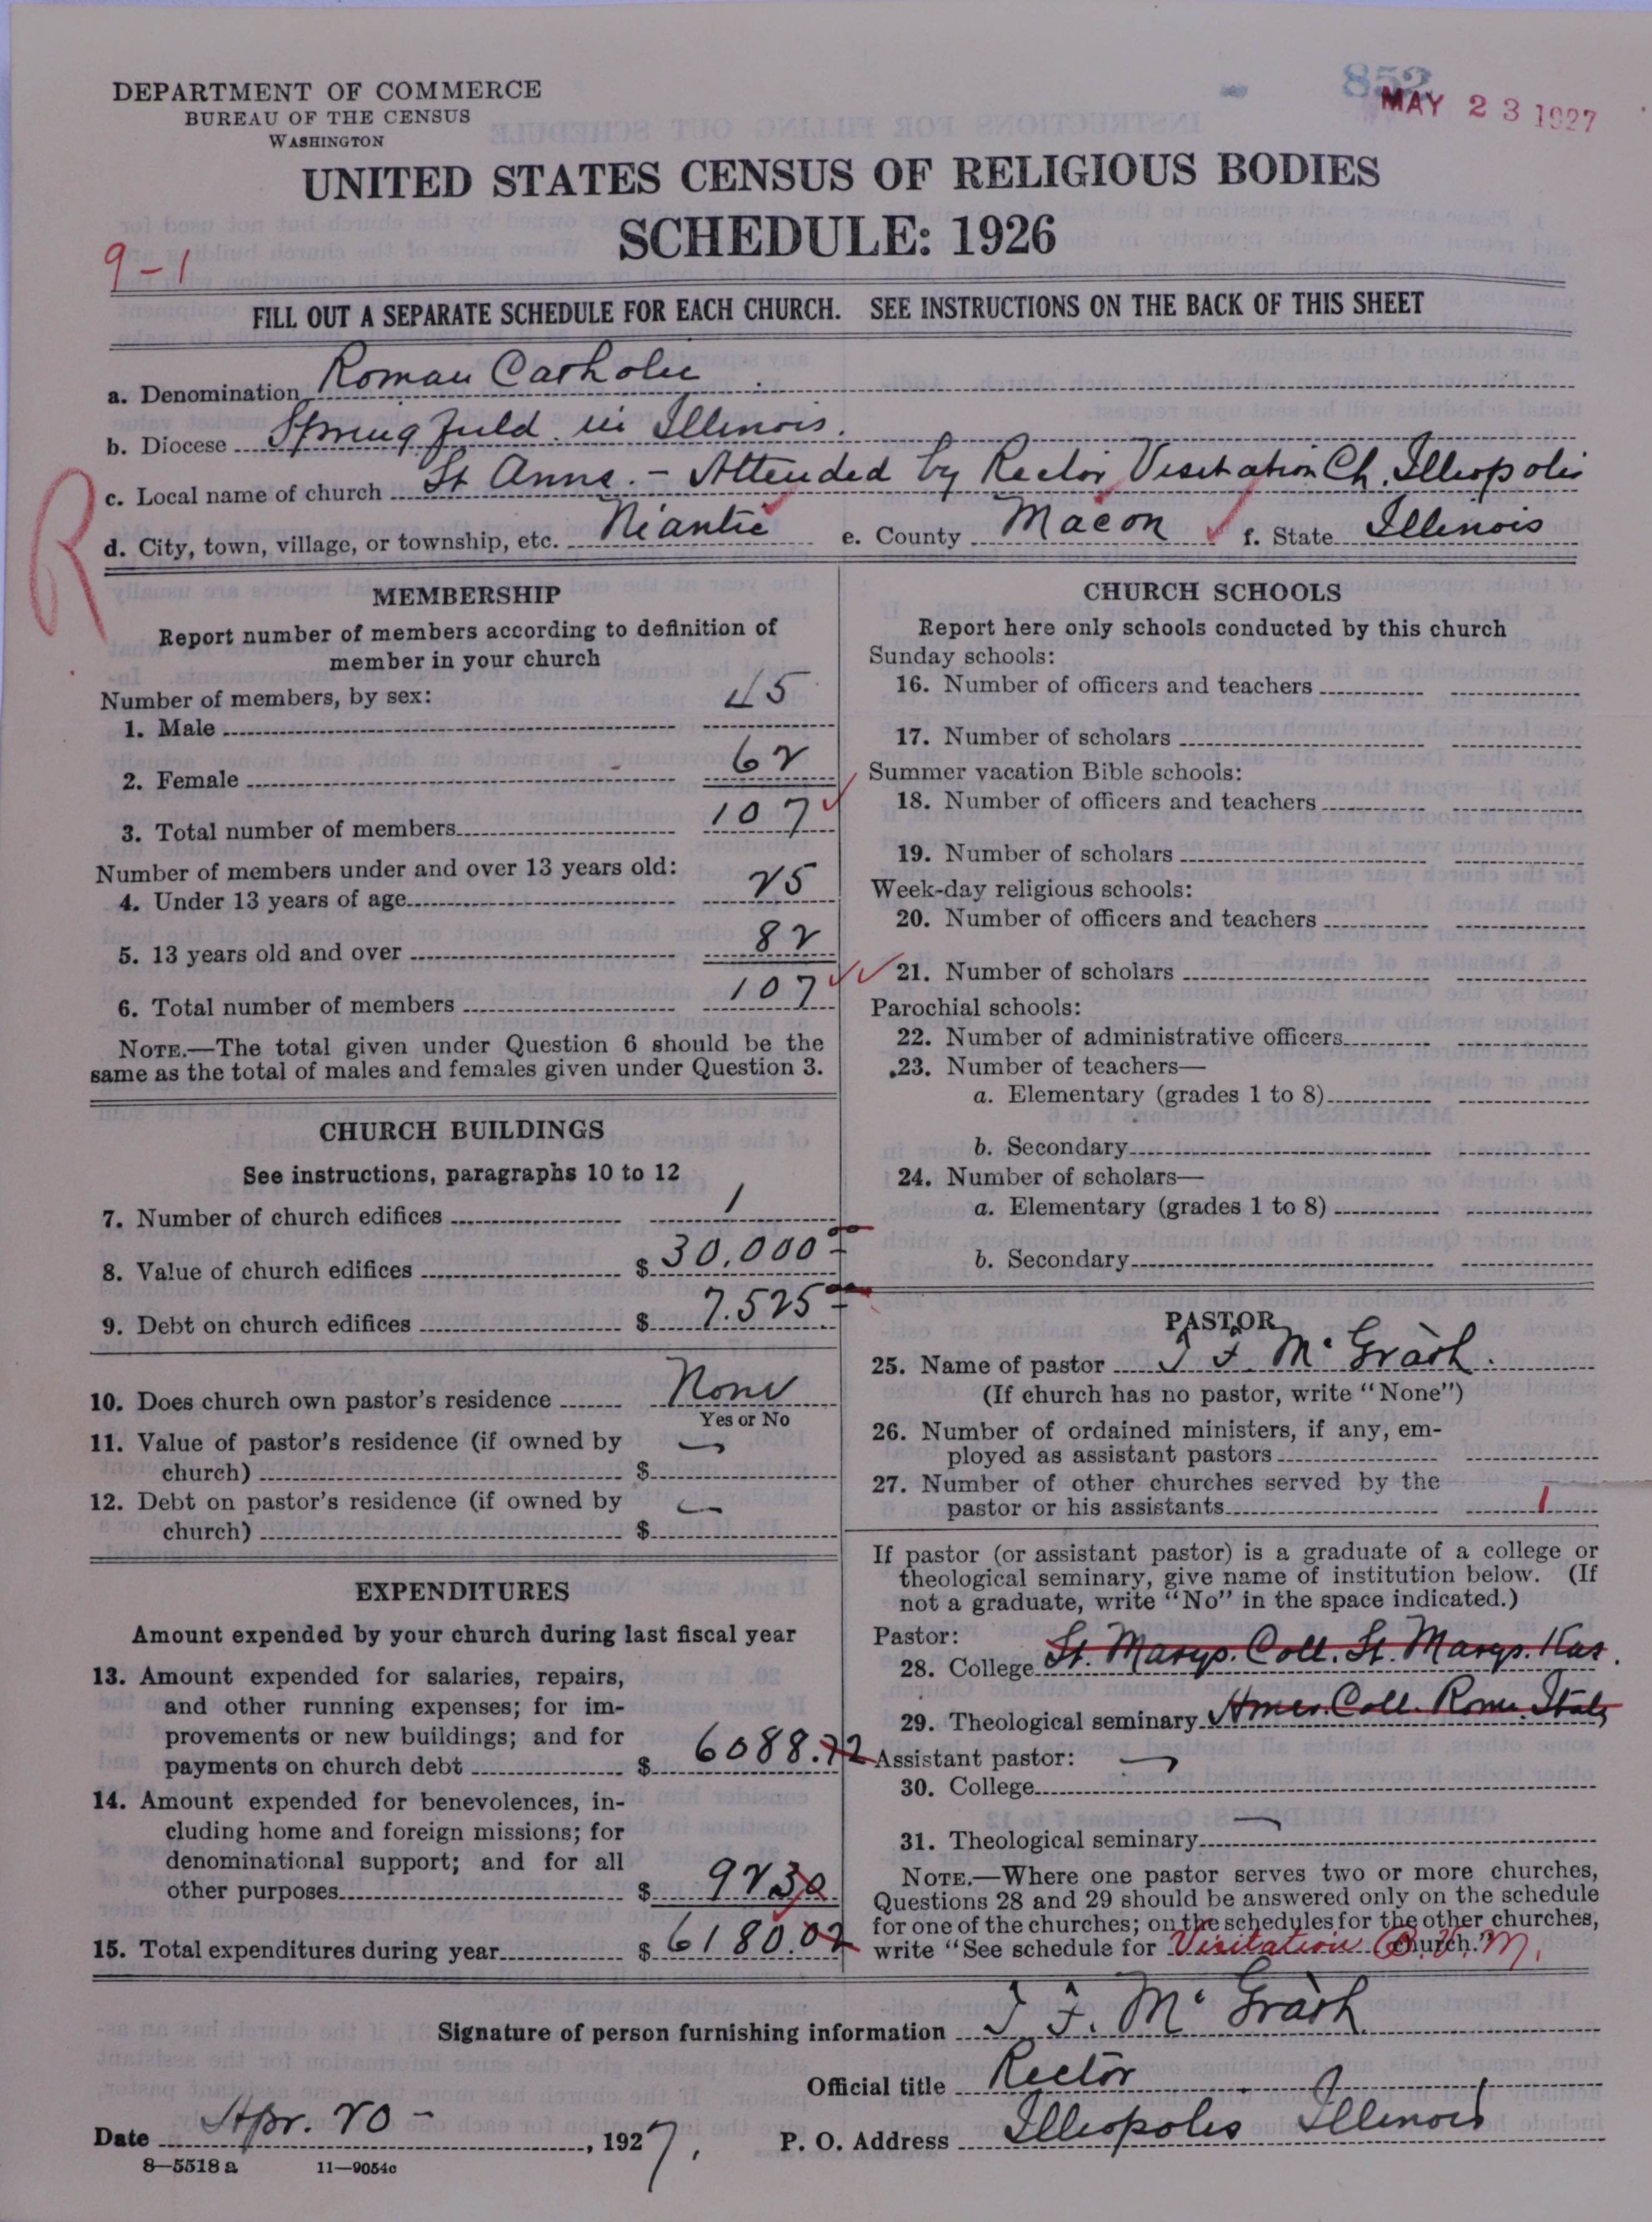 DEPARTMENT OF COMMERCE
BUREAU OF THE CENSUS
WASHINGTON
852
MAY 23 1927
UNITED STATES CENSUS OF RELIGIOUS BODIES
SCHEDULE: 1926
9-1
FILL OUT A SEPARATE SCHEDULE FOR EACH CHURCH. SEE INSTRUCTIONS ON THE BACK OF THIS SHEET
a. Denomination Roman Catholic
b. Diocese Springfield in Illinois.
c. Local name of church St Anns. - Attended by Rector Visitation Ch. Illiopolis
R
d. City, town, village, or township, etc. Niantic e. County Macon f. State Illinois
MEMBERSHIP
Report number of members according to definition of
member in your church
Number of members, by sex:
1. Male 45
2. Female 62
3. Total number of members 107
Number of members under and over 13 years old:
4. Under 13 years of age 25
5. 13 years old and over 82
6. Total number of members 107
NOTE.—The total given under Question 6 should be the
same as the total of males and females given under Question 3.
CHURCH BUILDINGS
See instructions, paragraphs 10 to 12
7. Number of church edifices 1
8. Value of church edifices $ 30,000 00
9. Debt on church edifices $ 7.525 00
10. Does church own pastor's residence None
Yes or No
11. Value of pastor's residence (if owned by
church) $
12. Debt on pastor's residence (if owned by
church) $
EXPENDITURES
Amount expended by your church during last fiscal year
13. Amount expended for salaries, repairs,
and other running expenses; for im-
provements or new buildings; and for
payments on church debt $ 6088.72
14. Amount expended for benevolences, in-
cluding home and foreign missions; for
denominational support; and for all
other purposes $ 92 30
15. Total expenditures during year $ 6180.02
CHURCH SCHOOLS
Report here only schools conducted by this church
Sunday schools:
16. Number of officers and teachers
17. Number of scholars
Summer vacation Bible schools:
18. Number of officers and teachers
19. Number of scholars
Week-day religious schools:
20. Number of officers and teachers
21. Number of scholars
Parochial schools:
22. Number of administrative officers
23. Number of teachers—
a. Elementary (grades 1 to 8)
b. Secondary
24. Number of scholars—
a. Elementary (grades 1 to 8)
b. Secondary
PASTOR
25. Name of pastor J F. McGrath.
(If church has no pastor, write "None")
26. Number of ordained ministers, if any, em-
ployed as assistant pastors
27. Number of other churches served by the
pastor or his assistants 1
If pastor (or assistant pastor) is a graduate of a college or
theological seminary, give name of institution below. (If
not a graduate, write "No" in the space indicated.)
Pastor:
28. College St. Marys. Coll. St. Marys. Kas.
29. Theological seminary Amer. Coll. Rome. Italy
Assistant pastor:
30. College
31. Theological seminary
NOTE.—Where one pastor serves two or more churches,
Questions 28 and 29 should be answered only on the schedule
for one of the churches; on the schedules for the other churches,
write "See schedule for Visitation B.V.M. Church."
Signature of person furnishing information J F. McGrath
Official title Rector
Date Apr. 20 - , 1927. P. O. Address Illiopolis Illinois
8—5518 a 11—9054c